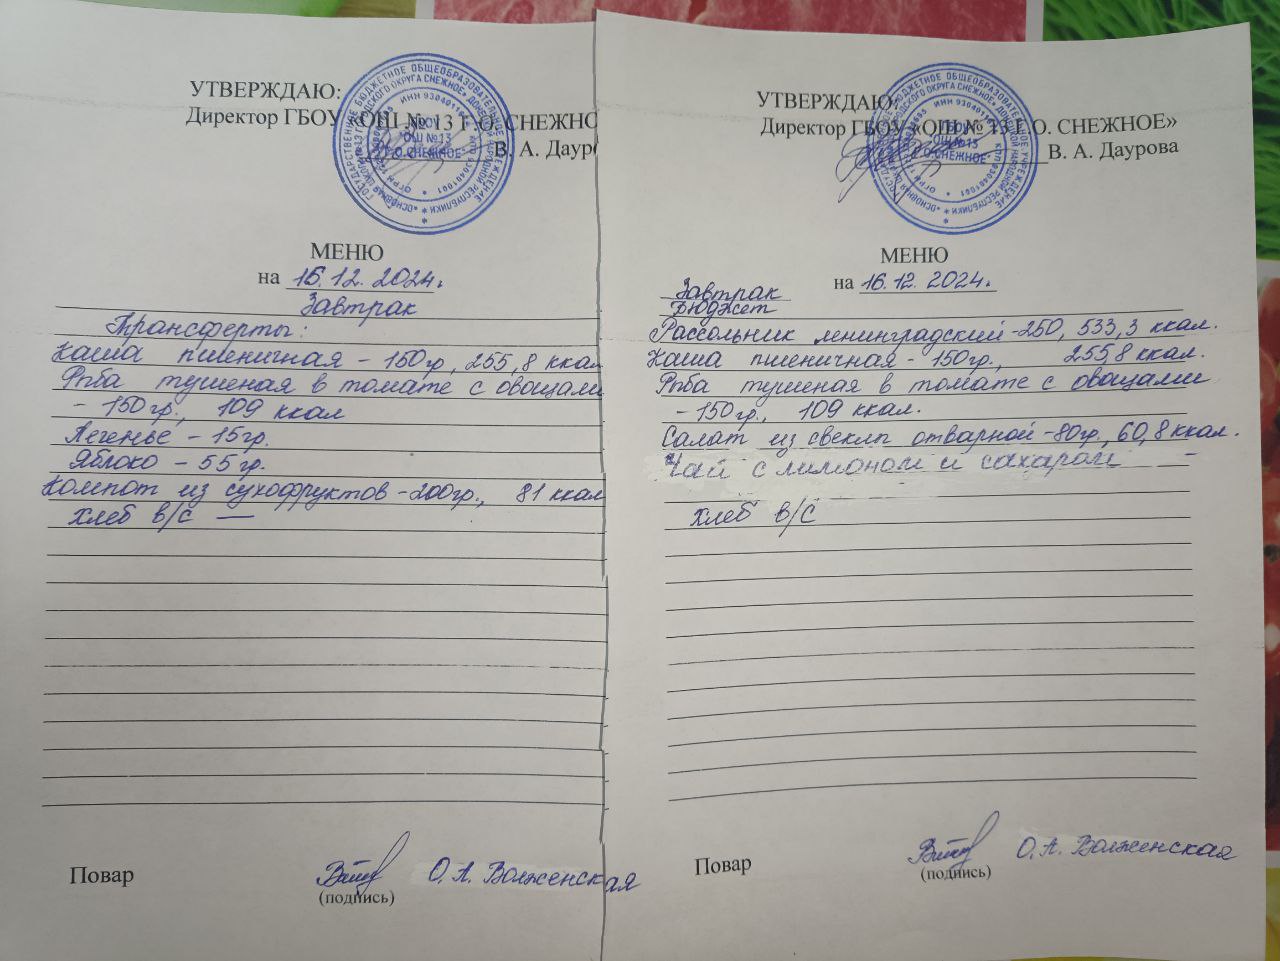 УТВЕРЖДАЮ:
Директор ГБОУ «ОШ № 13 Г.О. СНЕЖНО
В. А. Дауро
МЕНЮ
на 16.12.2024г.
Завтрак
Трансферты:
Каша пшеничная - 150гр, 255,8 ккал
Рыба тушеная в томате с овощами
- 150гр., 109 ккал
Печенье - 15гр.
Яблоко - 55гр.
Компот из сухофруктов - 200гр., 81 ккал
Хлеб в/с —
Повар
О.А. Волженская
(подпись)
УТВЕРЖДАЮ:
Директор ГБОУ «ОШ № 13 Г.О. СНЕЖНОЕ»
В. А. Даурова
МЕНЮ
на 16.12.2024г.
Завтрак
Бюджет
Рассольник ленинградский-250, 533,3 ккал.
Каша пшеничная - 150гр., 255,8 ккал.
Рыба тушеная в томате с овощами
- 150гр., 109 ккал.
Салат из свеклы отварной-80гр., 60,8 ккал.
Чай с лимоном и сахаром —
Хлеб в/с
Повар
О.А. Волженская
(подпись)